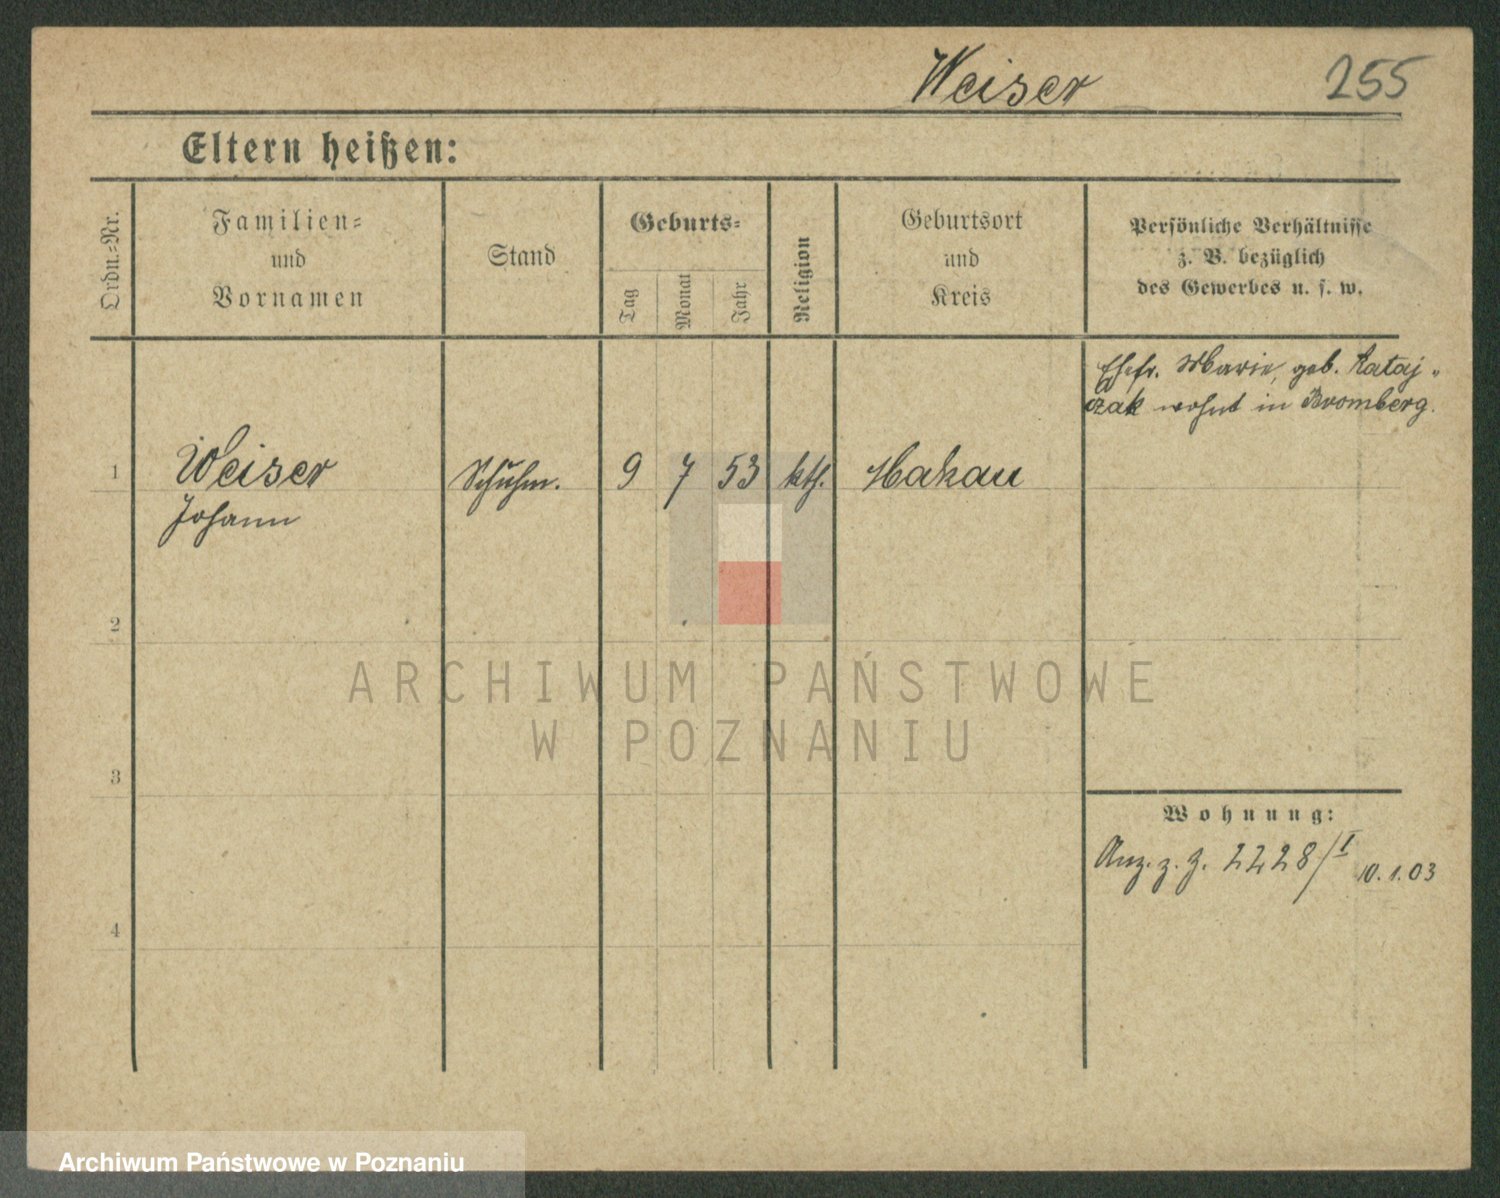 Weiser 255
Eltern heißen:
Ordn.-Nr.
Familien-
und
Vornamen
Stand
Geburts-
Tag
Monat
Jahr
Religion
Geburtsort
und
Kreis
Persönliche Verhältnisse
z. B. bezüglich
des Gewerbes u. s. w.
Ehefr. Marie, geb. Rataj-
czak wohnt in Bromberg.
1 Weiser Schuhm. 9 7 53 kth. Makau
Johann
2
ARCHIWUM PAŃSTWOWE
W POZNANIU
3
Wohnung:
Anz. z. Z. 2228/I 10.1.03
4
Archiwum Państwowe w Poznaniu